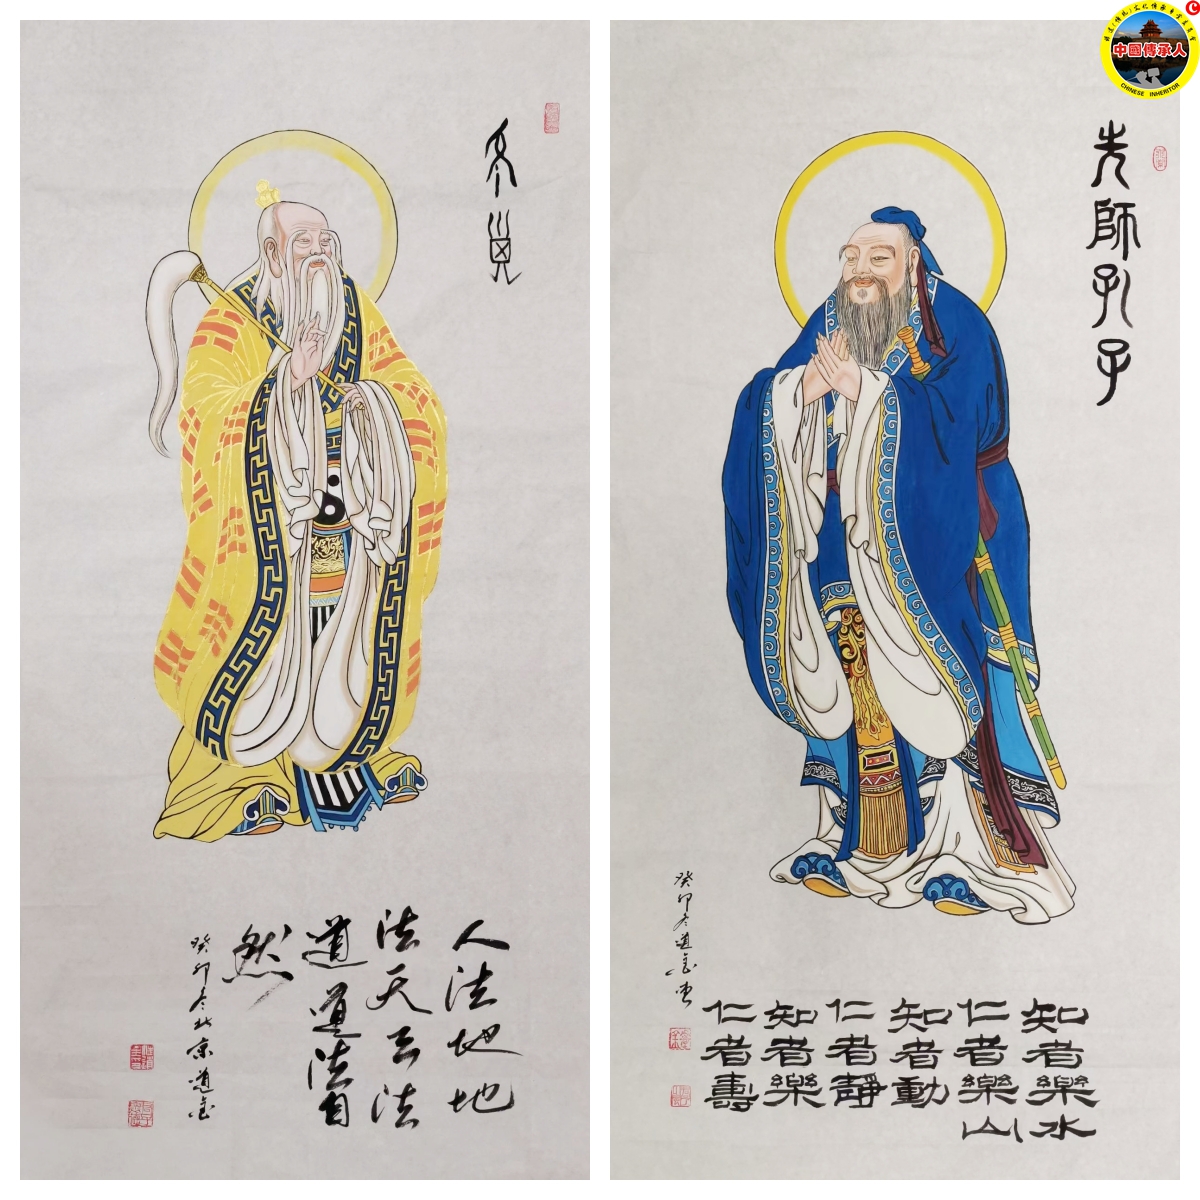 人法地地
法天天法
道道法自
然
癸卯冬北京道
先師孔子
知者樂水
仁者樂山
知者動
仁者靜
知者樂
仁者壽
癸卯冬道
中國傳承人
CHINESE INHERITOR